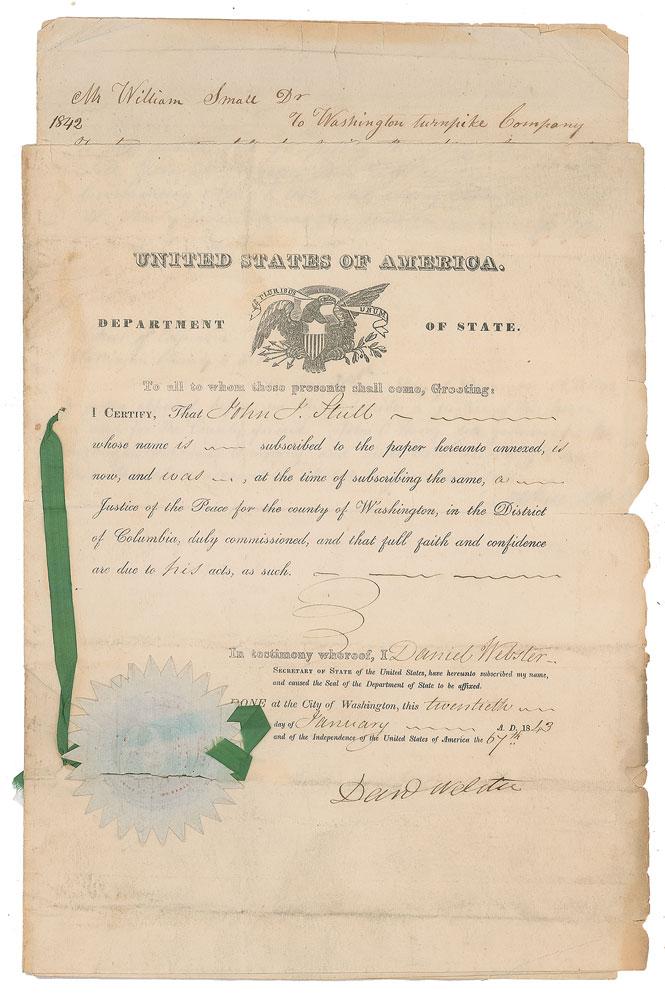 Mr William Small Dr
1842
To Washington turnpike Company
UNITED STATES OF AMERICA.
E PLURIBUS UNUM
DEPARTMENT OF STATE.
To all to whom these presents shall come, Greeting:
I CERTIFY, That John F. Stull
whose name is subscribed to the paper hereunto annexed, is
now, and was, at the time of subscribing the same, a
Justice of the Peace for the county of Washington, in the District
of Columbia, duly commissioned, and that full faith and confidence
are due to his acts, as such.
In testimony whereof, I Daniel Webster
SECRETARY OF STATE of the United States, have hereunto subscribed my name,
and caused the Seal of the Department of State to be affixed.
DONE at the City of Washington, this twentieth
day of January A. D. 1843
and of the Independence of the United States of America the 67th
Danl Webster